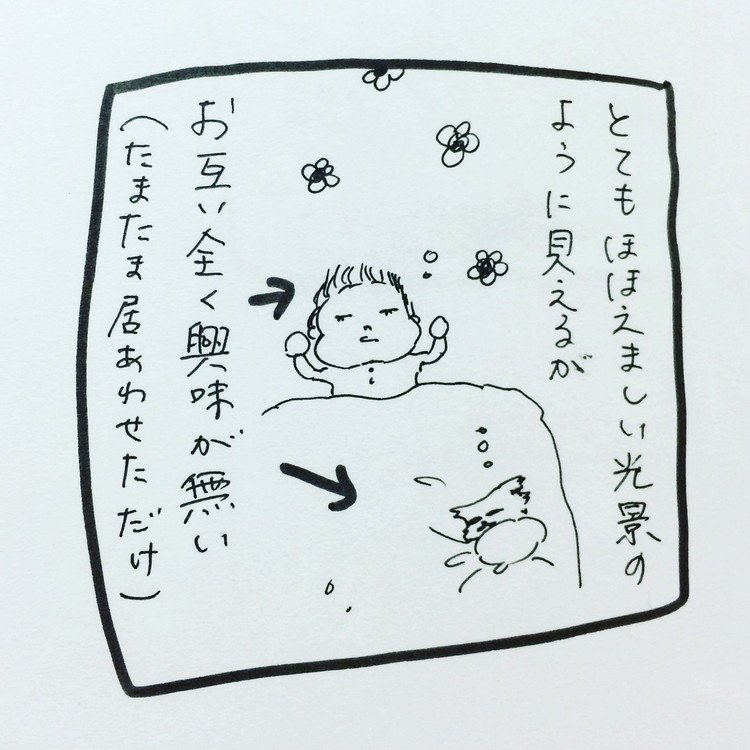 とてもほほえましい光景の
ように見えるが
お互い全く興味が無い
(たまたま居あわせただけ)